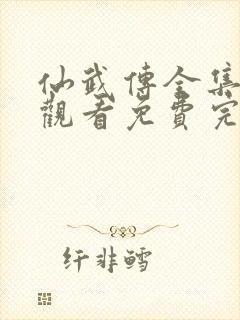 仙武傳全集
觀看免費完
纤非鳕